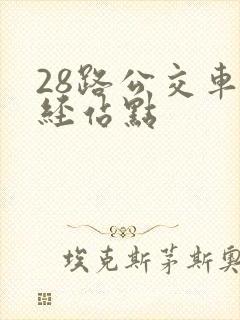 28路公交車
經站點
埃克斯茅斯奧